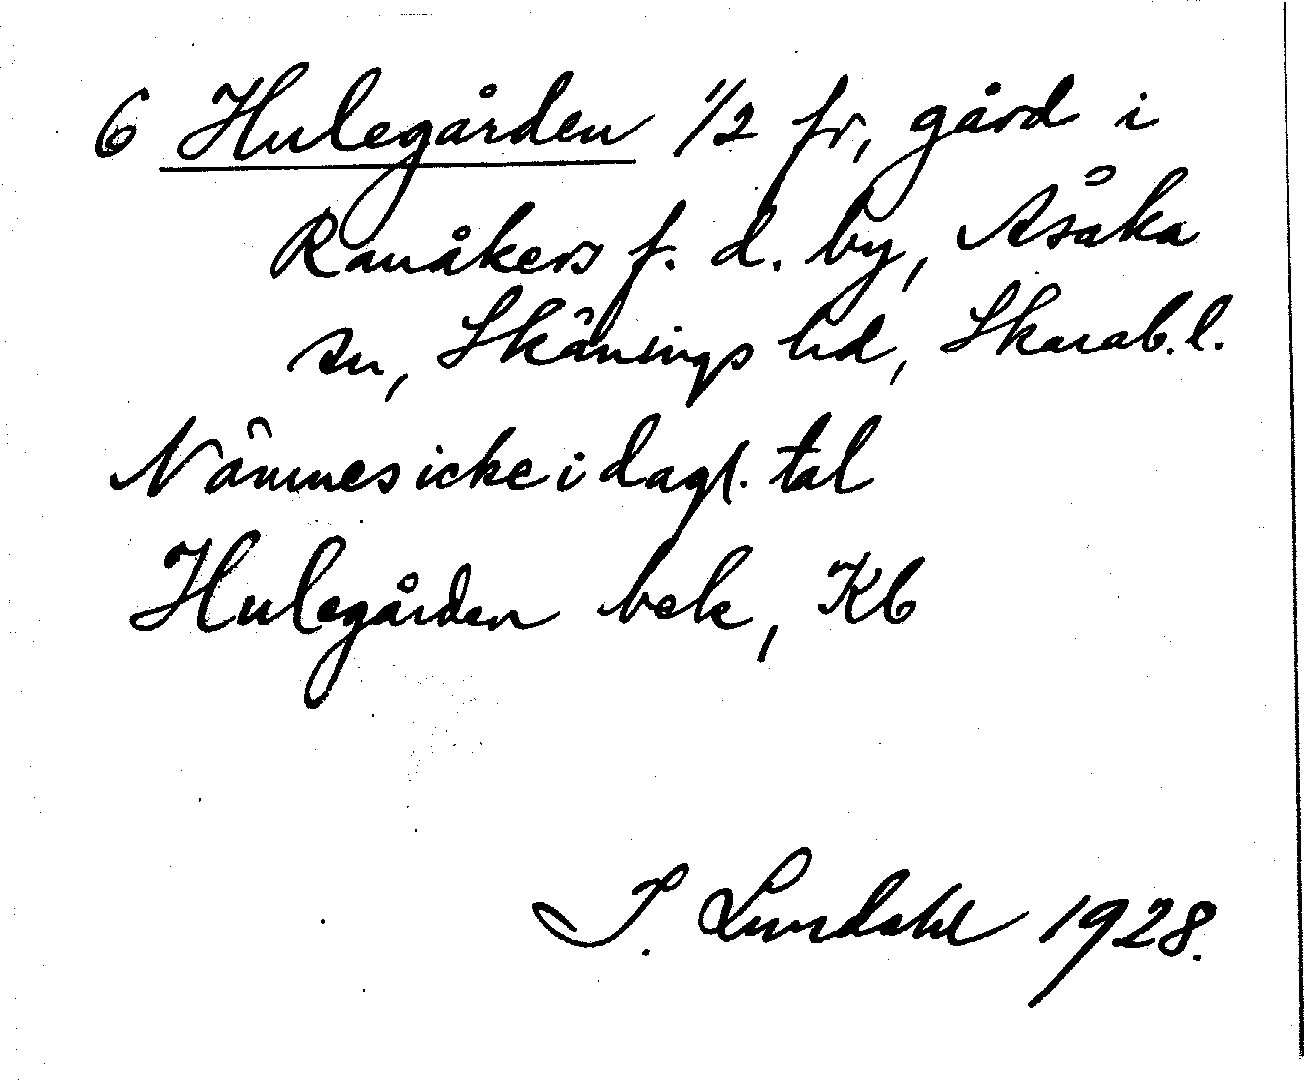 6 Hulegården 1/2 fr, gård i
Ranåkers f. d. by, Åsaka
sn, Skånings hd, Skarab. l.
Nämnes icke i dagl. tal
Hulegården bek, Kb
I. Lundahl 1928.